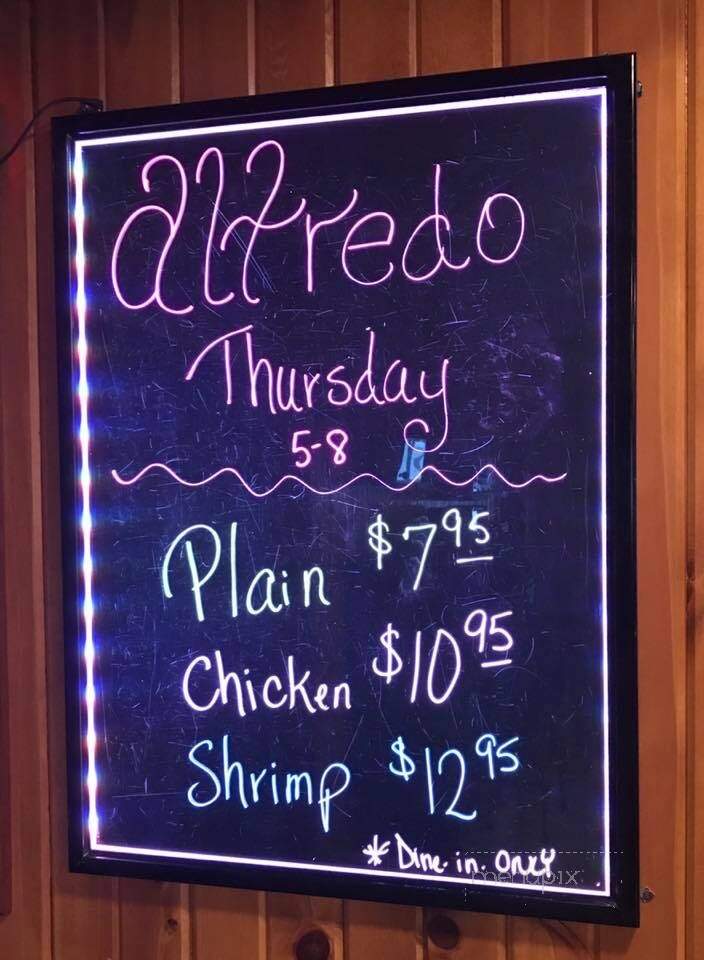 alfredo
Thursday
5-8
Plain $7.95
Chicken $10.95
Shrimp $12.95
* Dine-in. Only
menupix